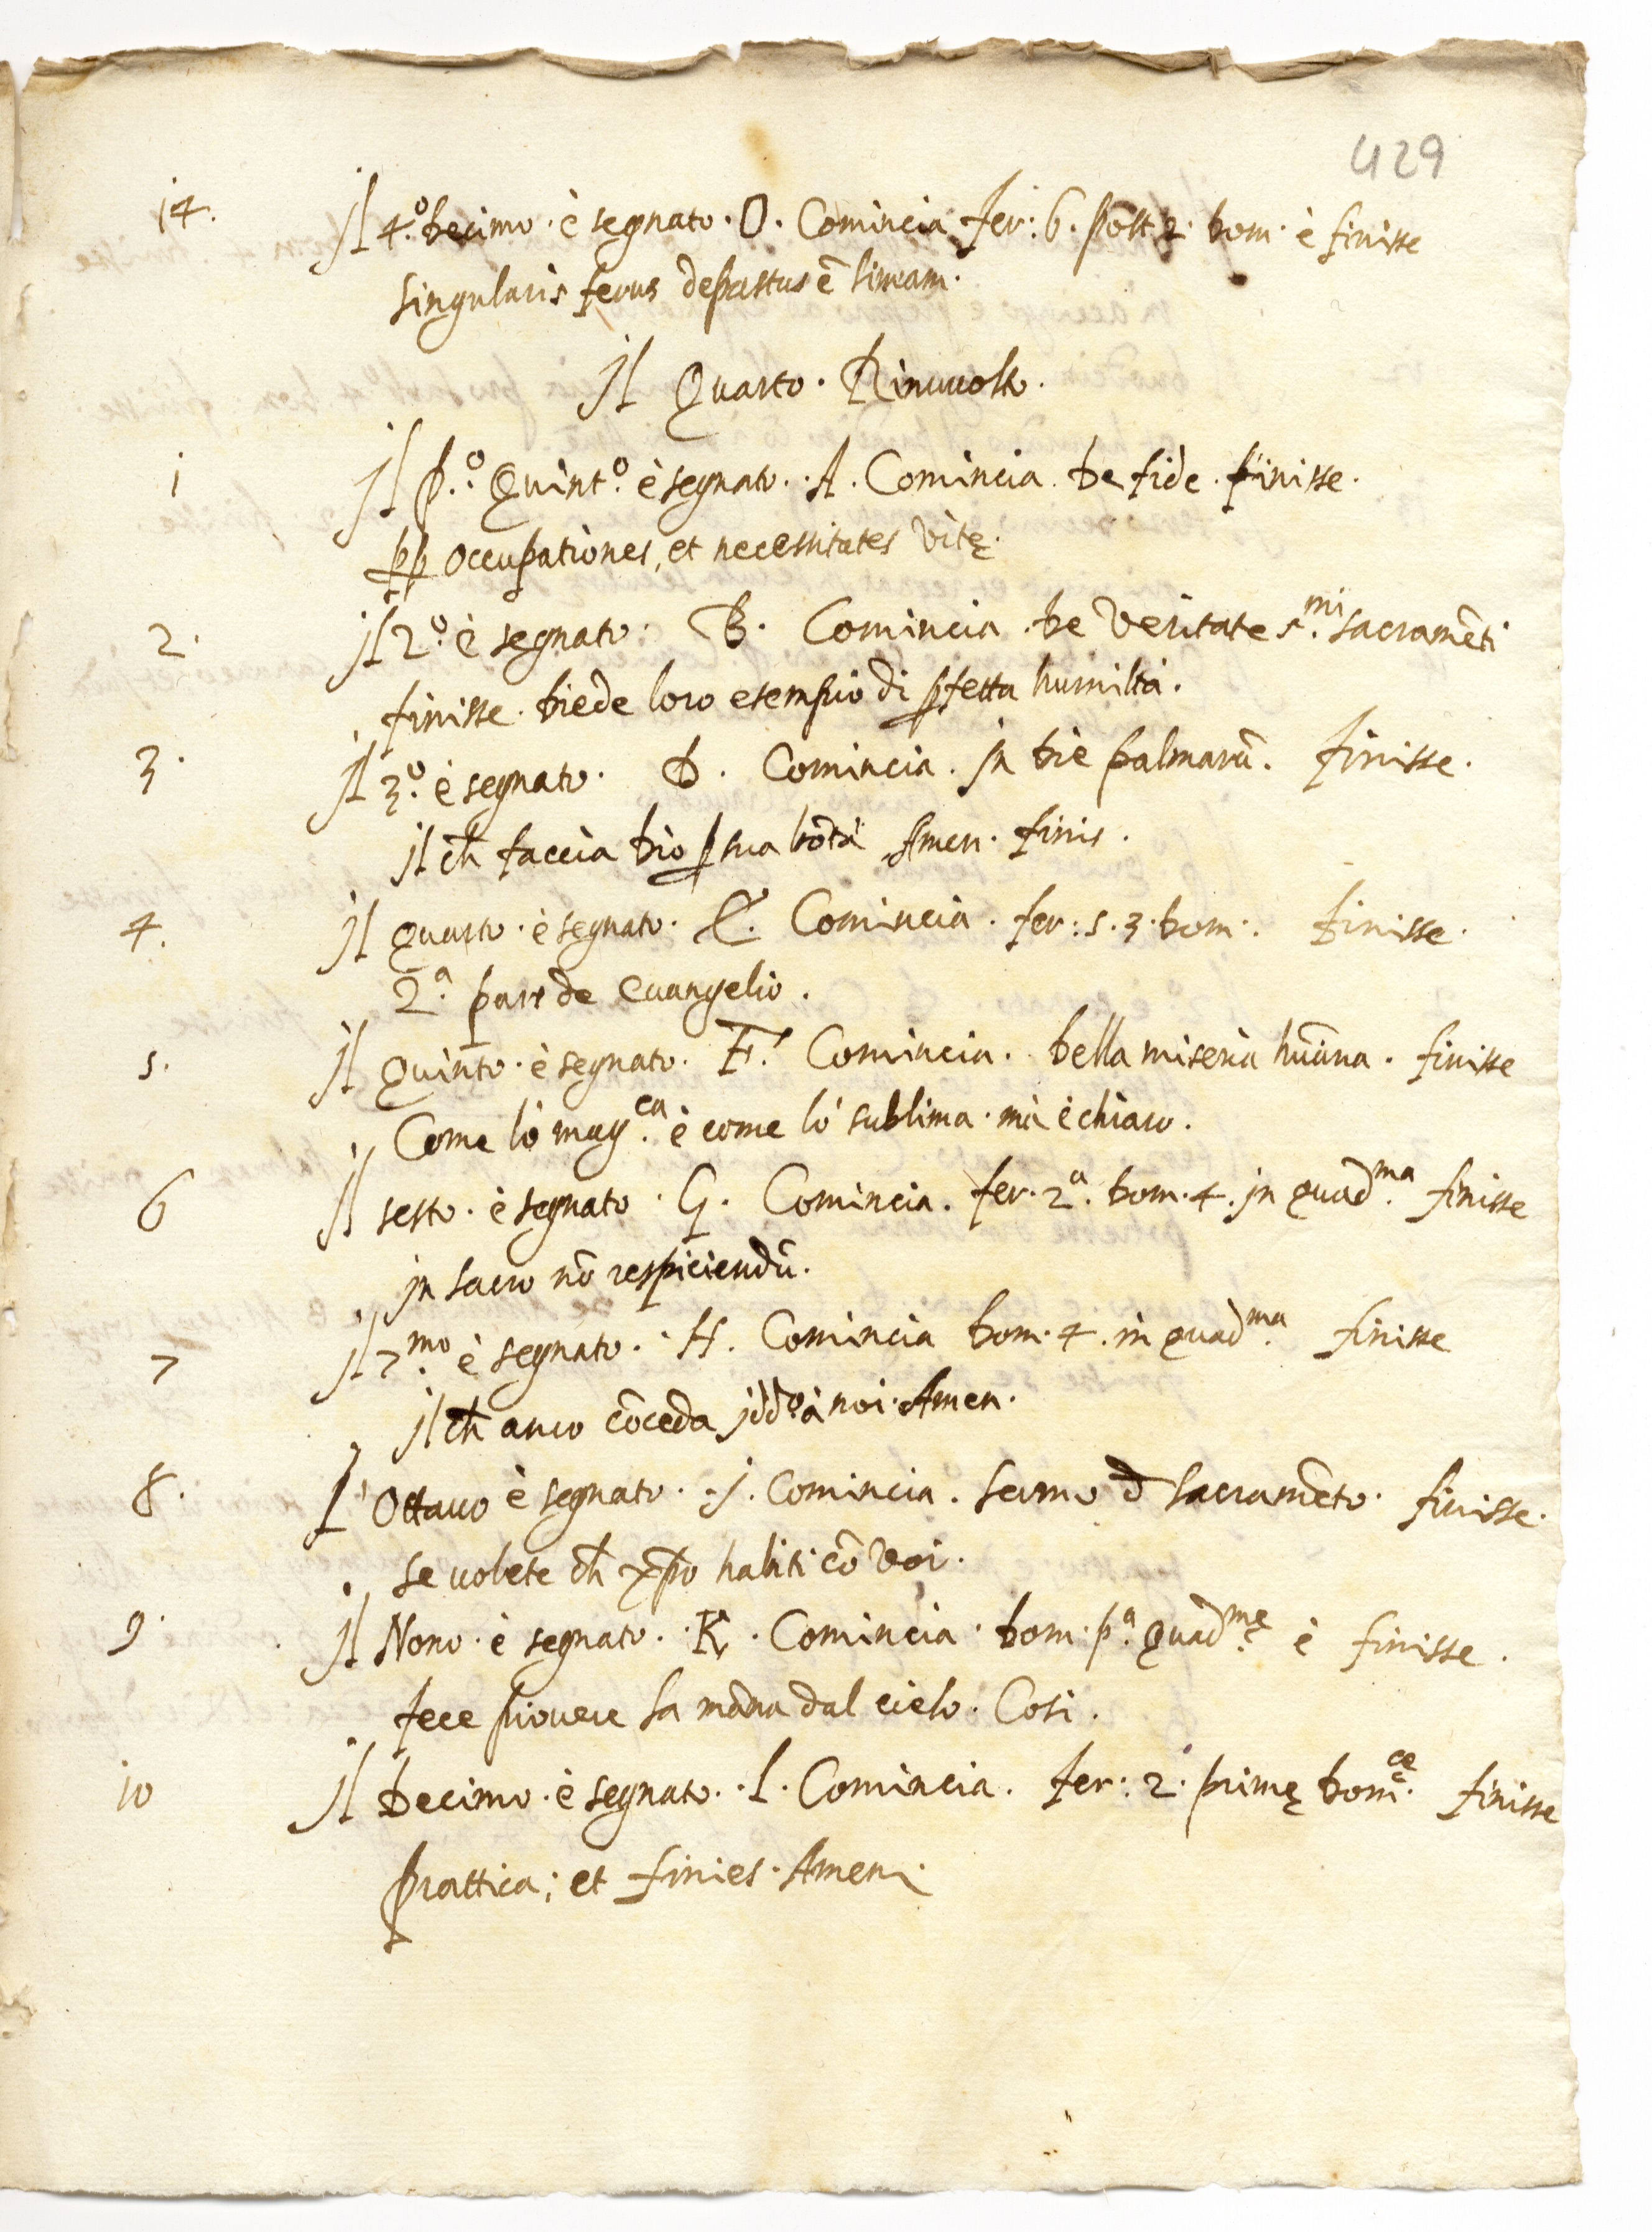 429
14. Il 4.º Decimo. è segnato. O. Comincia fer: 6. post 2. Dom. è finisse
singularis ferus depastus ē
Il Quarto. Rinuuolto.
1 Il p.º Quint.º è segnato. A. Comincia. De fide. finisse.
pp occupationes, et necessitates vitę.
2. Il 2.º è segnato. B. Comincia. De Veritate s.mi sacramēti
finisse. Diede loro esempio di pfetta humiltà.
3. Il 3.º è segnato. D. Comincia. In Die palmarū. finisse.
Il ch faccia Dio p sua bōtà Amen. finis.
4. Il Quarto. è segnato. E. Comincia. fer: 5. 3. Dom. finisse.
2.ª parte de Euangelio.
5. Il Quinto. è segnato. F. Comincia. Della miseria hūana. finisse
Come lo mag.ca è come lo sublima. mà è chiaro.
6 Il sesto. è segnato. G. Comincia. fer. 2.ª Dom. 4. in quad.ma finisse
in sacro nō respiciendū.
7 Il 7.mo è segnato. H. Comincia Dom. 4. in quad.ma finisse
Il ch anco cōceda Idd.º à noi. Amen.
8. L'Ottauo è segnato. I. Comincia. sermo d sacramēto. finisse.
se uolete ch xp̄o habiti cō voi.
9. Il Nono. è segnato. K. Comincia. Dom. p.ª quad.mę è finisse.
fece piouere la māna dal cielo. Cosi.
10 Il Decimo. è segnato. L. Comincia. fer: 2. primę Dom.ce finisse
prattica; et finies. Amen.